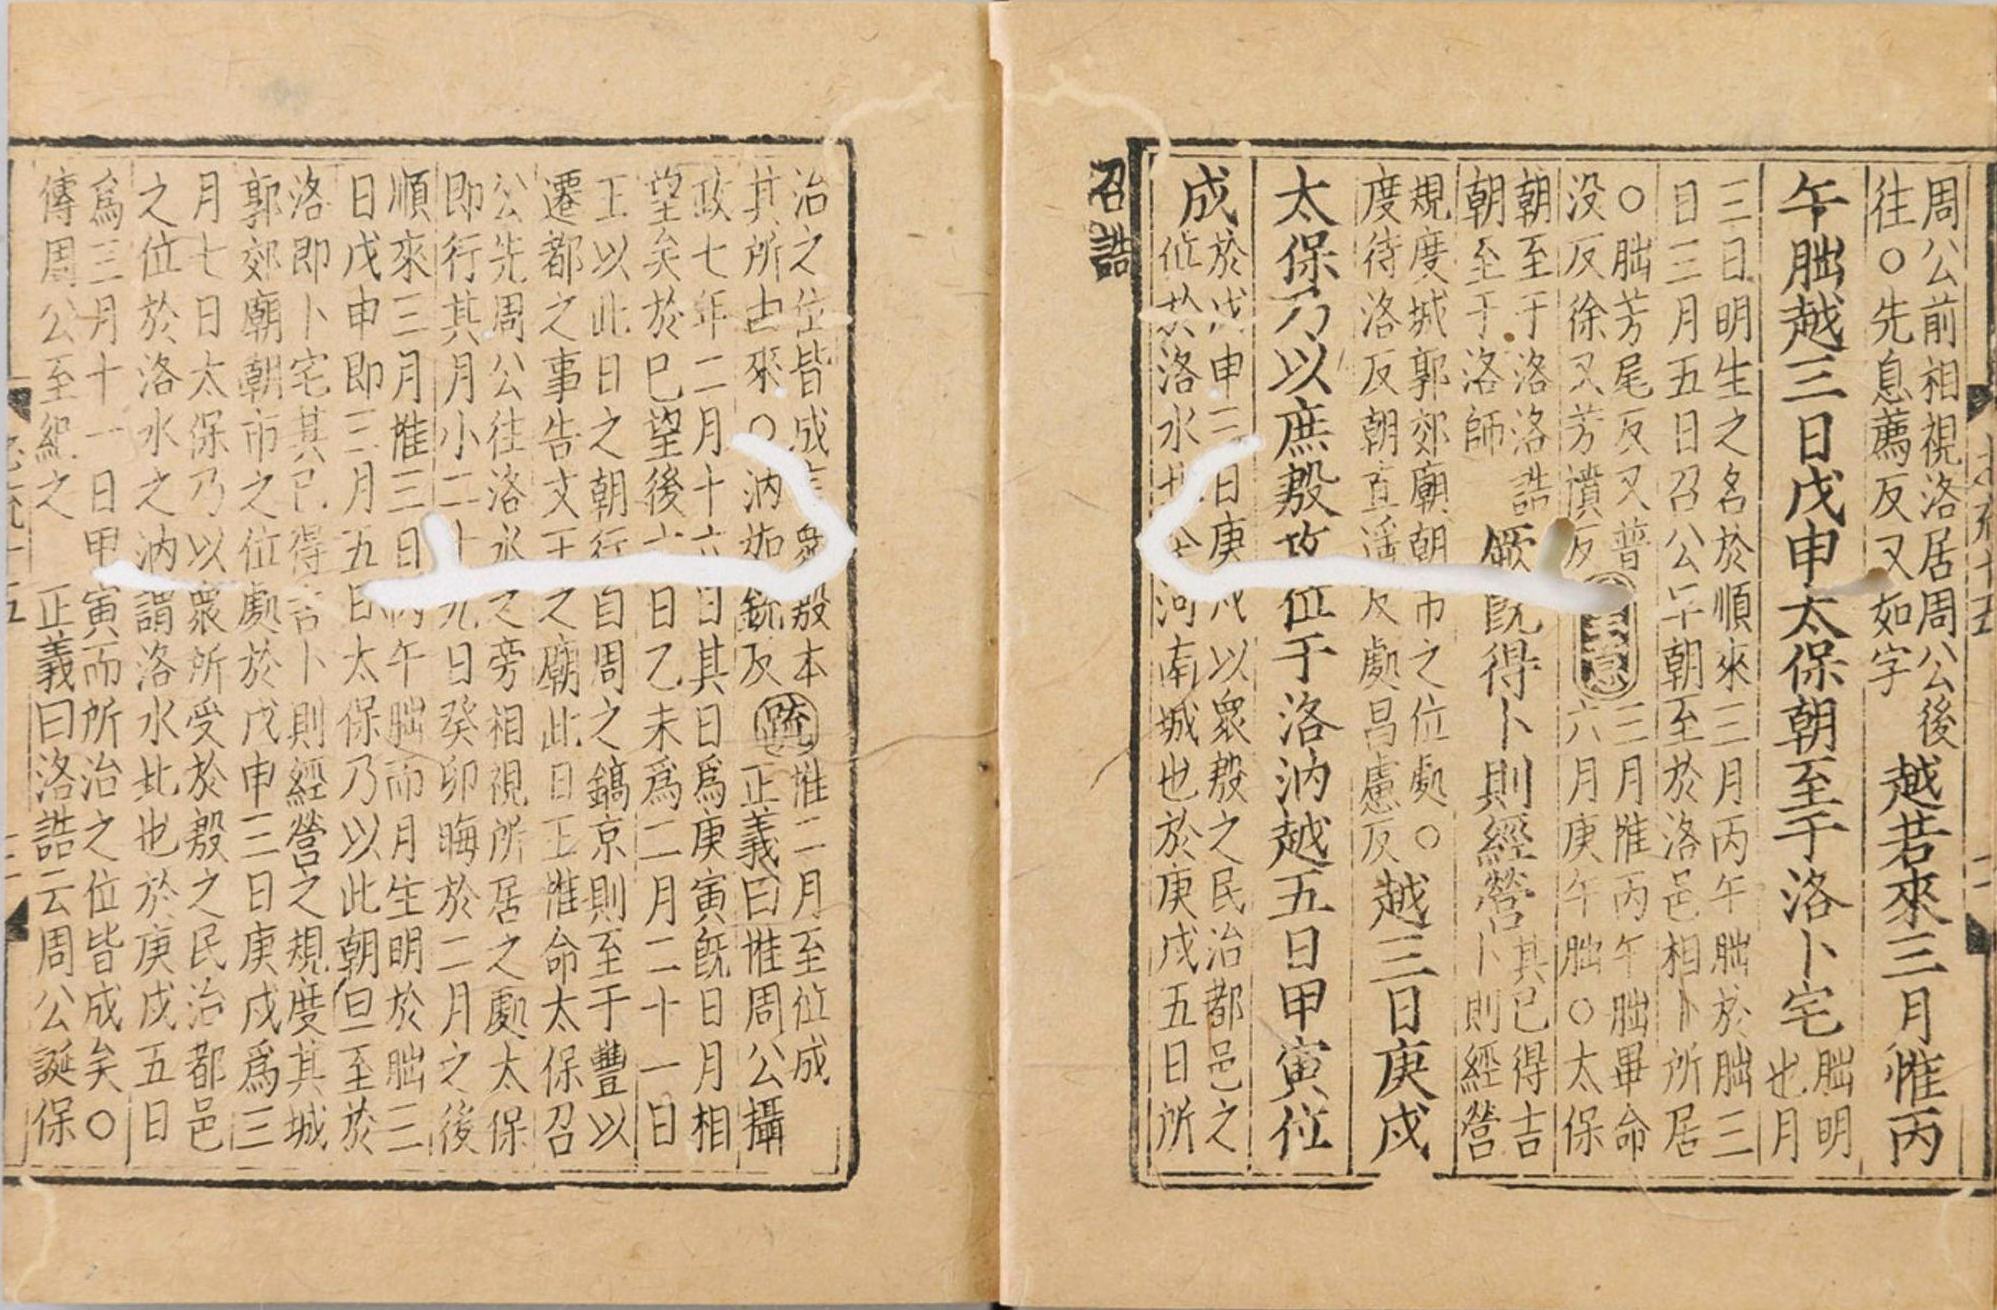 周公前相視洛居周公後
往〇先息薦反又如字
越若來三月惟丙
午朏越三日戊申太保朝至于洛卜宅
朏明
也月
三日明生之名於順來三月丙午朏於朏三
日三月五日召公早朝至於洛邑相卜所居
〇朏芳尾反又普
没反徐又芳憒反
重意
三月惟丙午朏畢命
六月庚午朏〇太保
朝至于洛洛誥
朝至于洛師
厥既得卜則經營
其已得吉
卜則經營
規度城郭郊廟朝市之位處〇
度待洛反朝直遥反處昌慮反
越三日庚戌
太保乃以庶殷攻位于洛汭越五日甲寅位
成
於戊申三日庚戌以衆殷之民治都邑之
位於洛水北今河南城也於庚戌五日所
召誥
治之位皆成言衆殷本
其所由來〇汭如銳反
疏
惟二月至位成
正義曰惟周公攝
政七年二月十六日其日爲庚寅既日月相
望矣於已望後六日乙未爲二月二十一日
王以此日之朝行自周之鎬京則至于豐以
遷都之事告文王之廟此日王惟命太保召
公先周公往洛水之旁相視所居之處太保
即行其月小二十九日癸卯晦於二月之後
順來三月惟三日丙午朏而月生明於朏三
日戊申即三月五日太保乃以此朝旦至於
洛即卜宅其已得吉卜則經營之規度其城
郭郊廟朝市之位處於戊申三日庚戌爲三
月七日太保乃以衆所受於殷之民治都邑
之位於洛水之汭謂洛水北也於庚戌五日
爲三月十一日甲寅而所治之位皆成矣〇
傳周公至紀之 正義曰洛誥云周公誕保